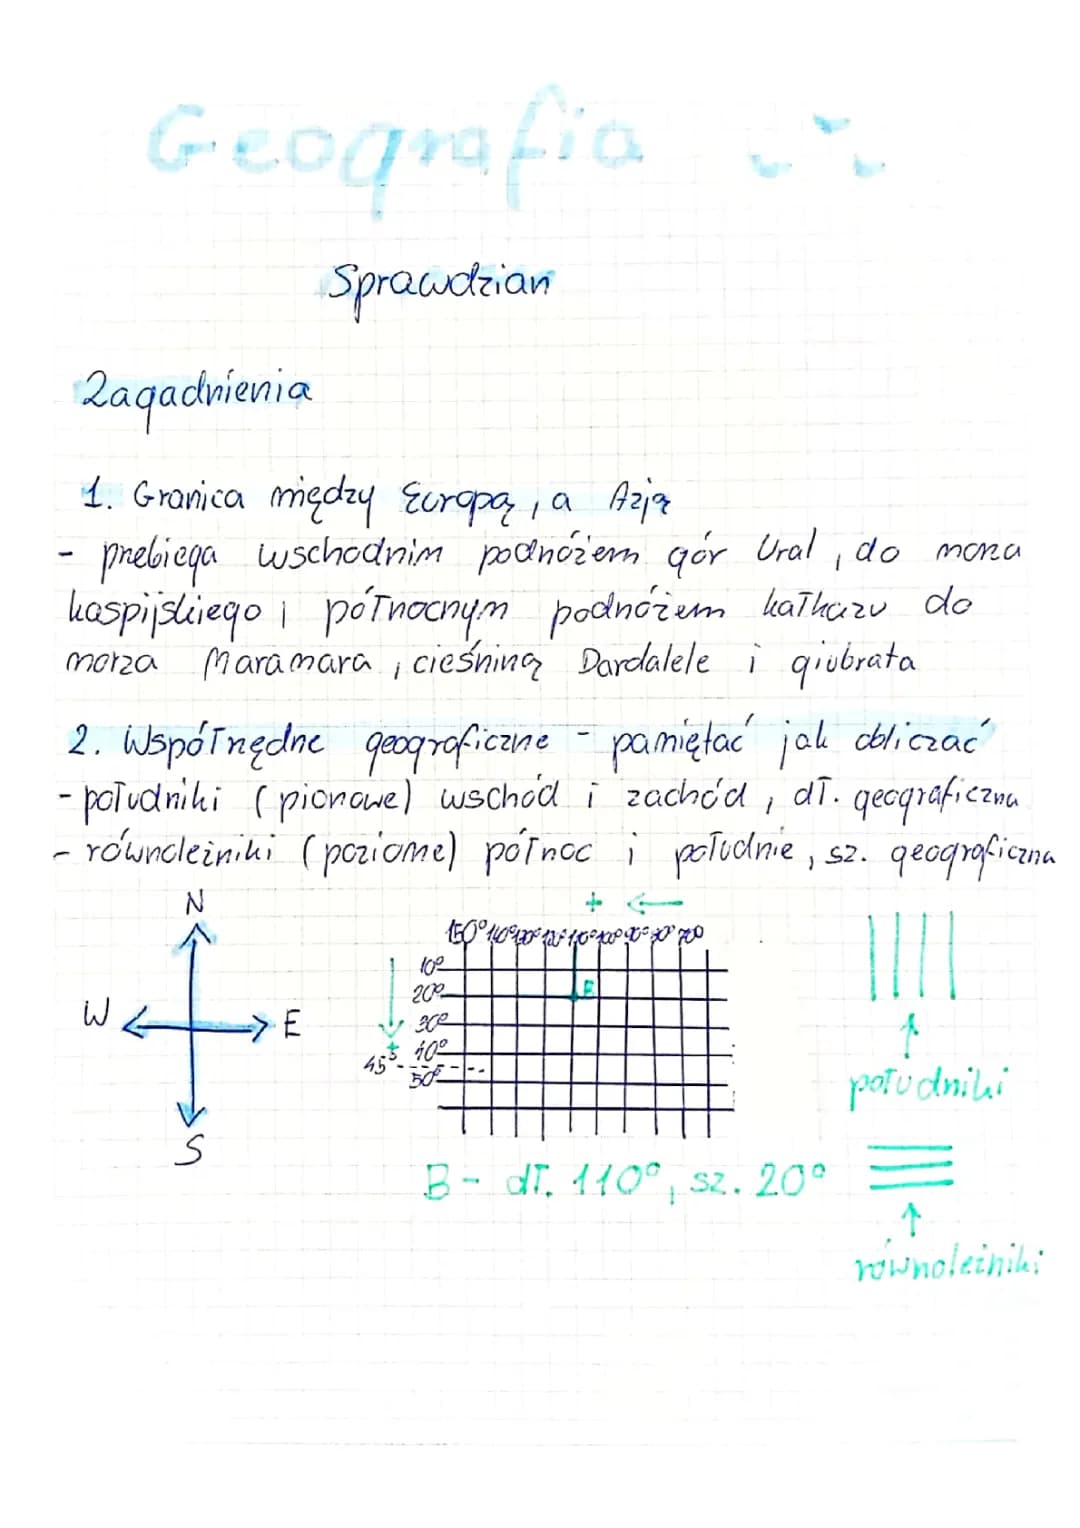 Geografia
Sprawdzian
Zagadnienia
1. Granica między Europą, a Azją
- przebiega wschodnim podnóżem gór Ural, do morza
kaspijskiego i północnym podnóżem kałkazu do
morza Maramara, cieśniną Dardalele i giubrata
2. Współrzędne geograficzne - pamiętać jak obliczać
- południki (pionowe) wschód i zachód, dł. geograficzna
- równoleżniki (poziome) północ i południe, sz. geograficzna
N
W E
S
+ ←
150° 140° 130° 120° 110° 100° 90° 80° 70°
10°
20° B
30°
+ 40°
45°
50°
B - dł. 110°, sz. 20°
południki
równoleżniki